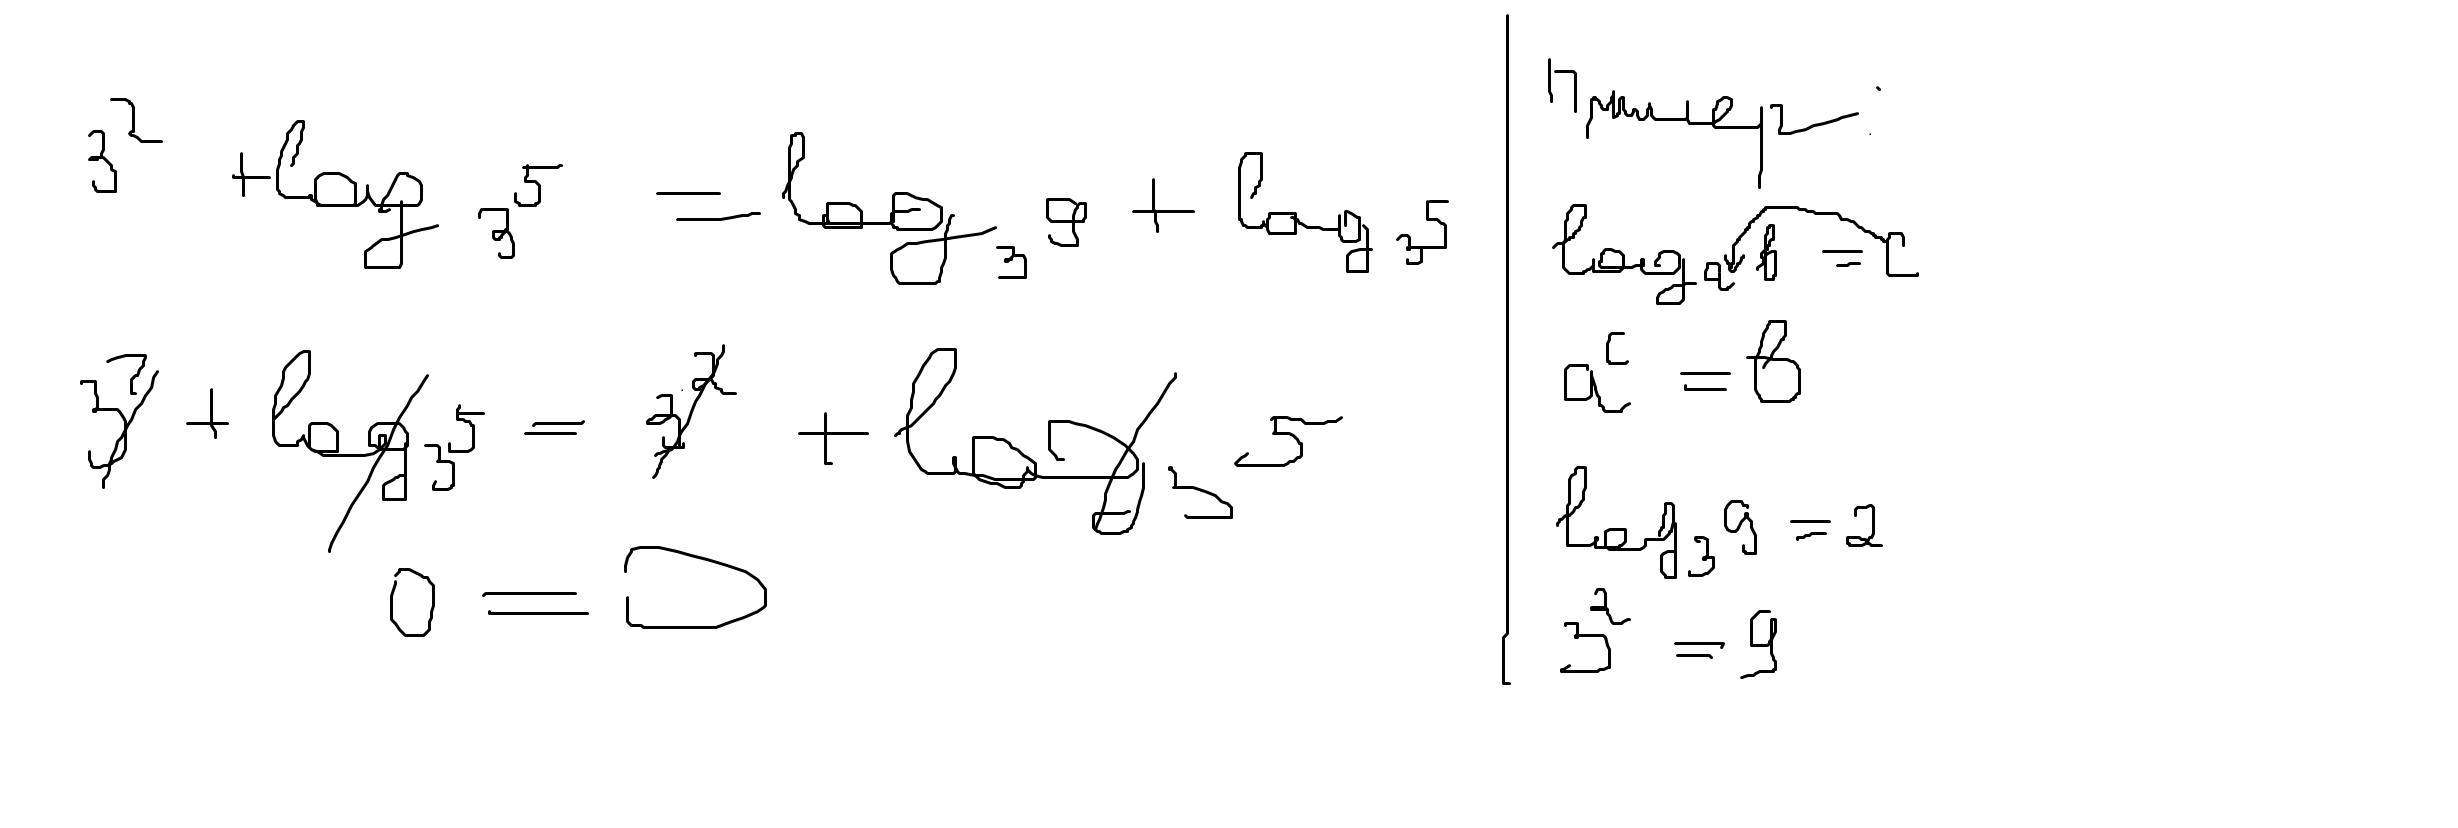 3² + log₃5 = log₃9 + log₃5
3² + log₃5 = 3² + log₃5
0 = 0
Пример:
logₐb = c
aᶜ = b
log₃9 = 2
3² = 9